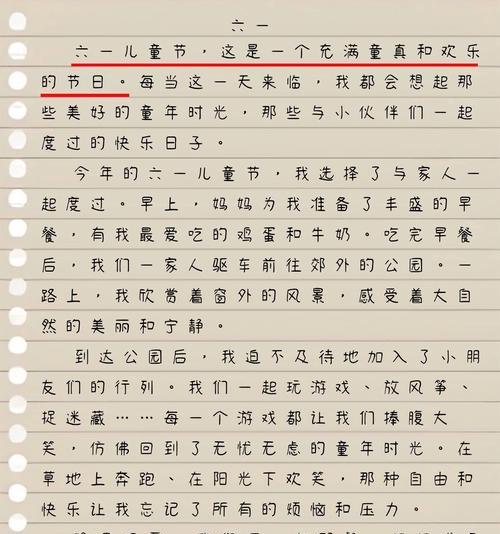 六一
六一儿童节，这是一个充满童真和欢乐
的节日。每当这一天来临，我都会想起那
些美好的童年时光，那些与小伙伴们一起
度过的快乐日子。
今年的六一儿童节，我选择了与家人一
起度过。早上，妈妈为我准备了丰盛的早
餐，有我最爱吃的鸡蛋和牛奶。吃完早餐
后，我们一家人驱车前往郊外的公园。一
路上，我欣赏着窗外的风景，感受着大自
然的美丽和宁静。
到达公园后，我迫不及待地加入了小朋
友们的行列。我们一起玩游戏、放风筝、
捉迷藏……每一个游戏都让我们捧腹大
笑，仿佛回到了无忧无虑的童年时光。在
草地上奔跑、在阳光下欢笑，那种自由和
快乐让我忘记了所有的烦恼和压力。